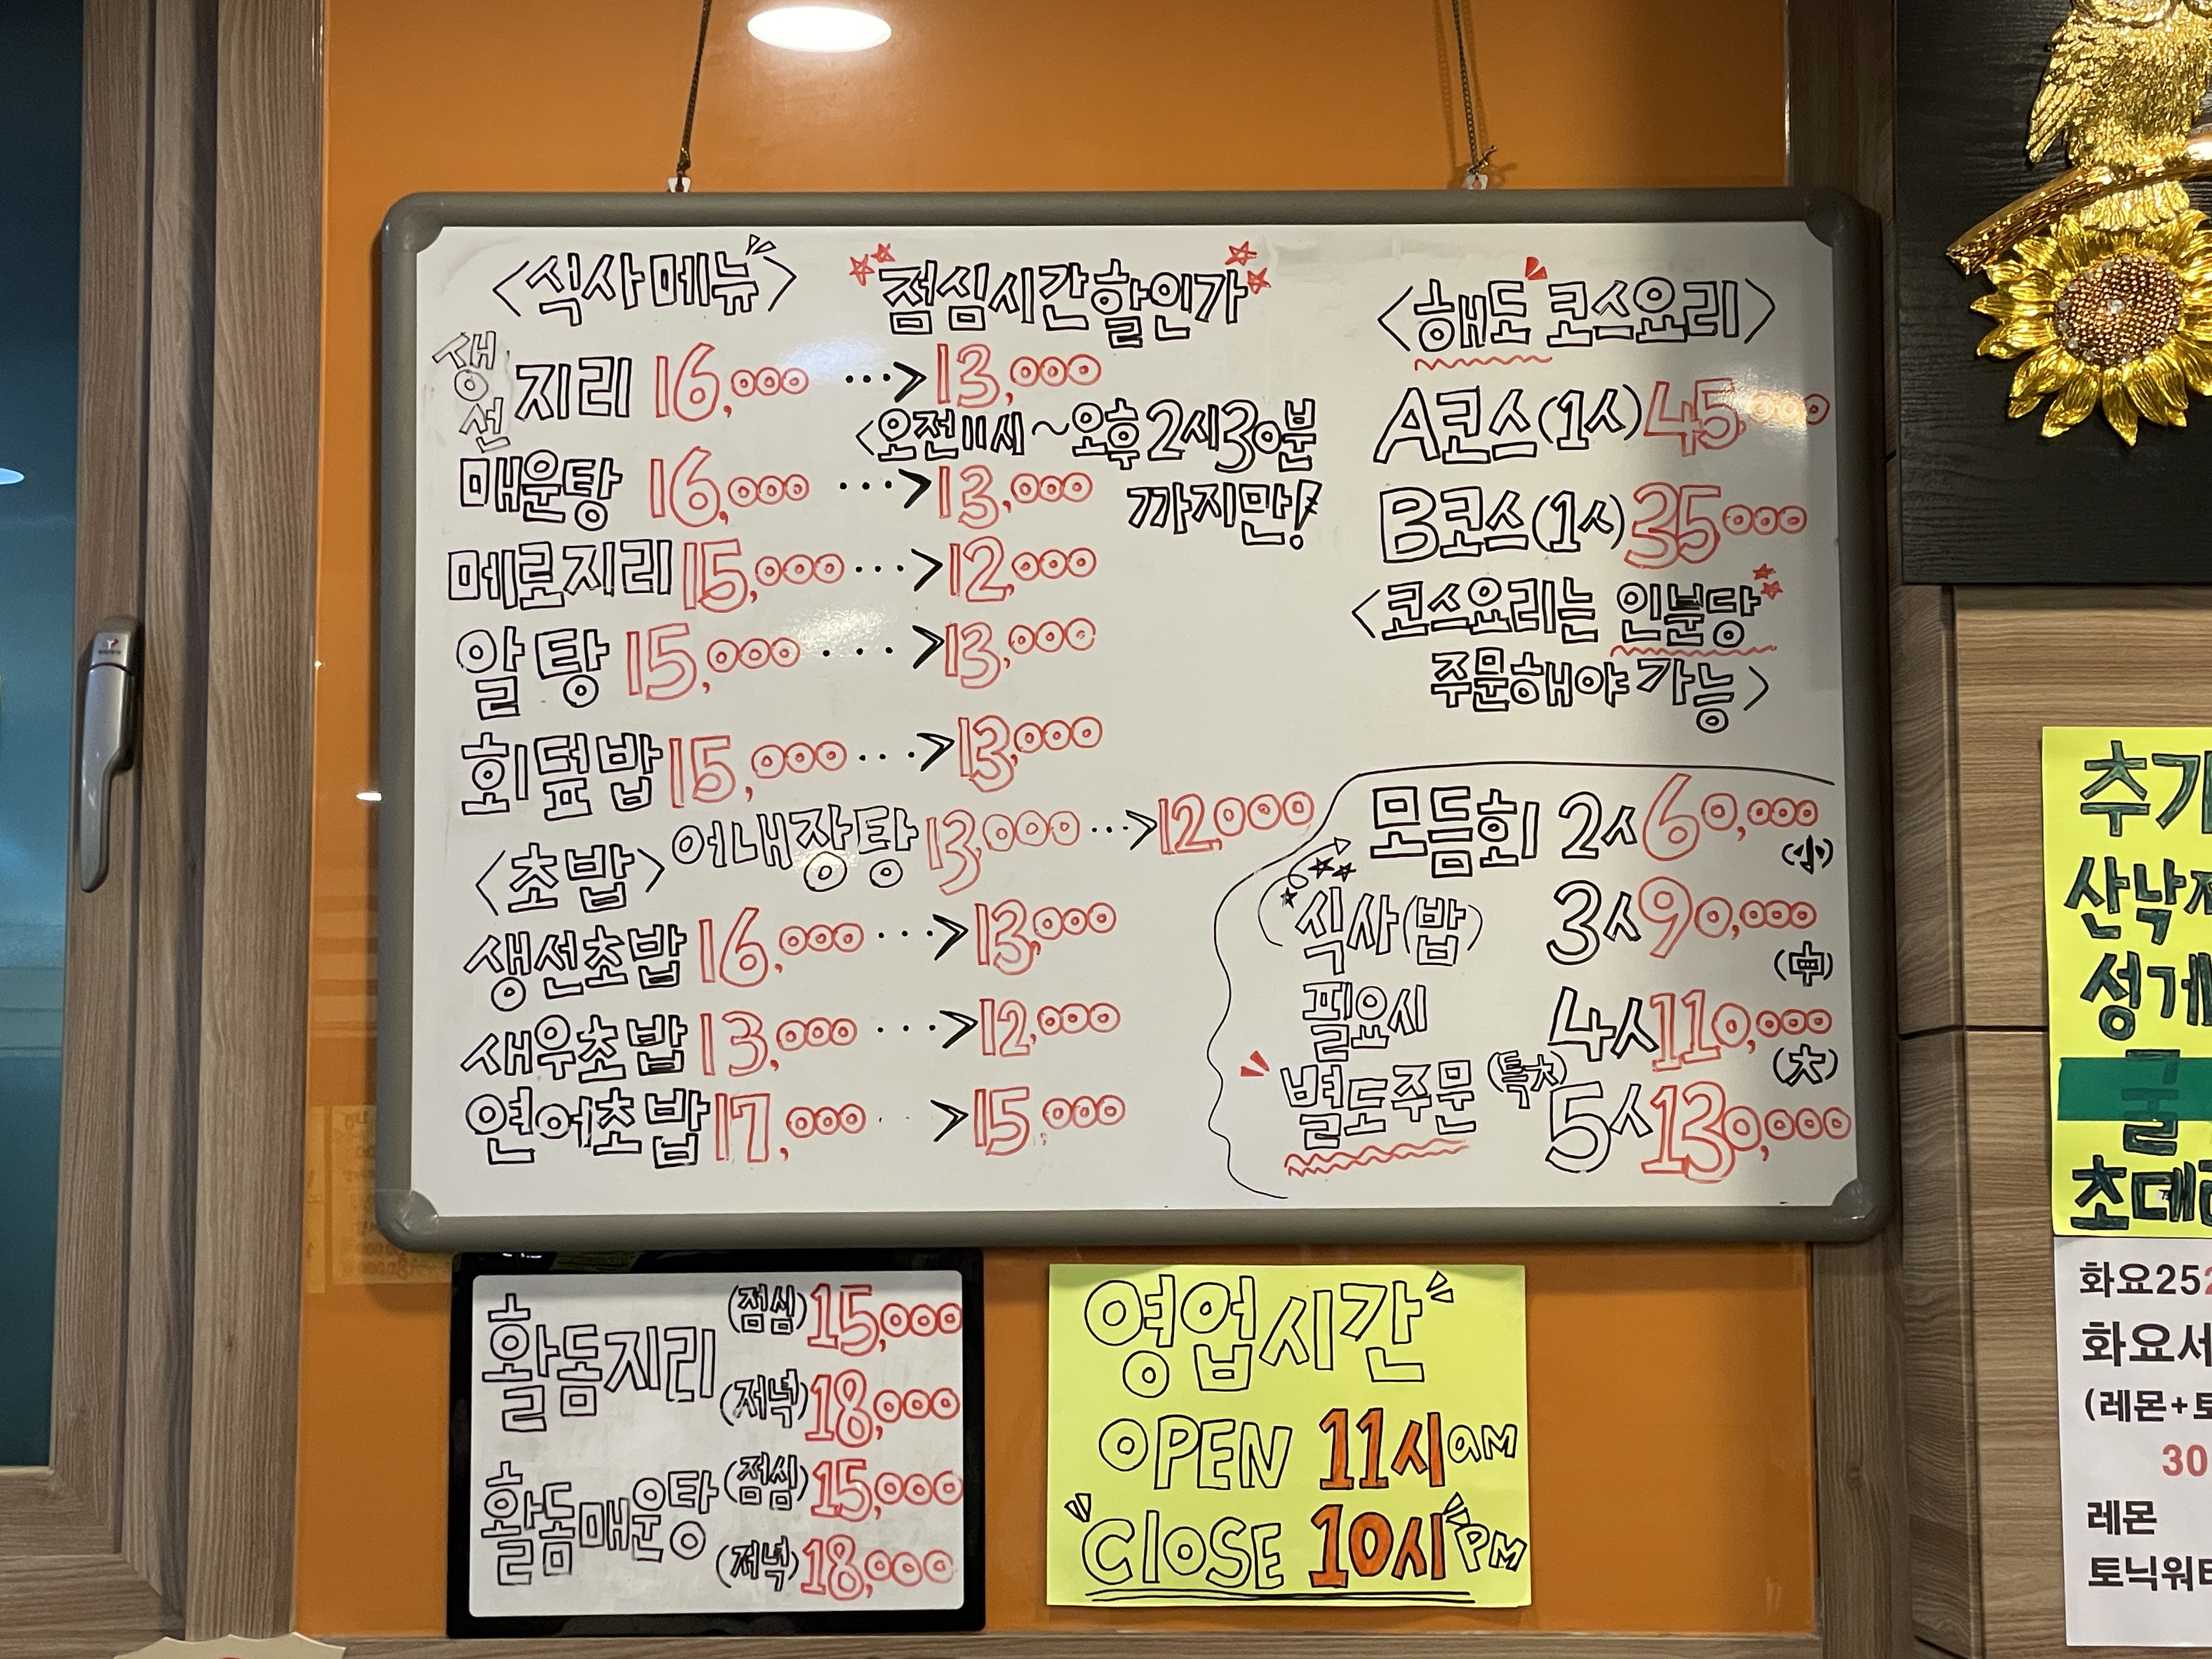 <식사메뉴>
점심시간할인가
생선지리 16,000 ···> 13,000
<오전11시~오후2시30분
까지만!
매운탕 16,000 ···> 13,000
메로지리 15,000 ···> 12,000
알탕 15,000 ···> 13,000
회덮밥 15,000 ···> 13,000
어내장탕 13,000 ···> 12,000
<초밥>
생선초밥 16,000 ···> 13,000
새우초밥 13,000 ···> 12,000
연어초밥 17,000 ··> 15,000
<해도 코스요리>
A코스(1人) 45000
B코스(1人) 35000
<코스요리는 인분당
주문해야 가능>
모듬회 2人 60,000
(小)
3人 90,000
(中)
4人 110,000
(大)
(특大) 5人 130,000
식사(밥)
필요시
별도주문
활돔지리 (점심) 15,000
(저녁) 18,000
활돔매운탕 (점심) 15,000
(저녁) 18,000
영업시간
OPEN 11시 am
CLOSE 10시 PM
추가
산낙
성게
초데
화요25
화요서
(레몬+토
30
레몬
토닉워터